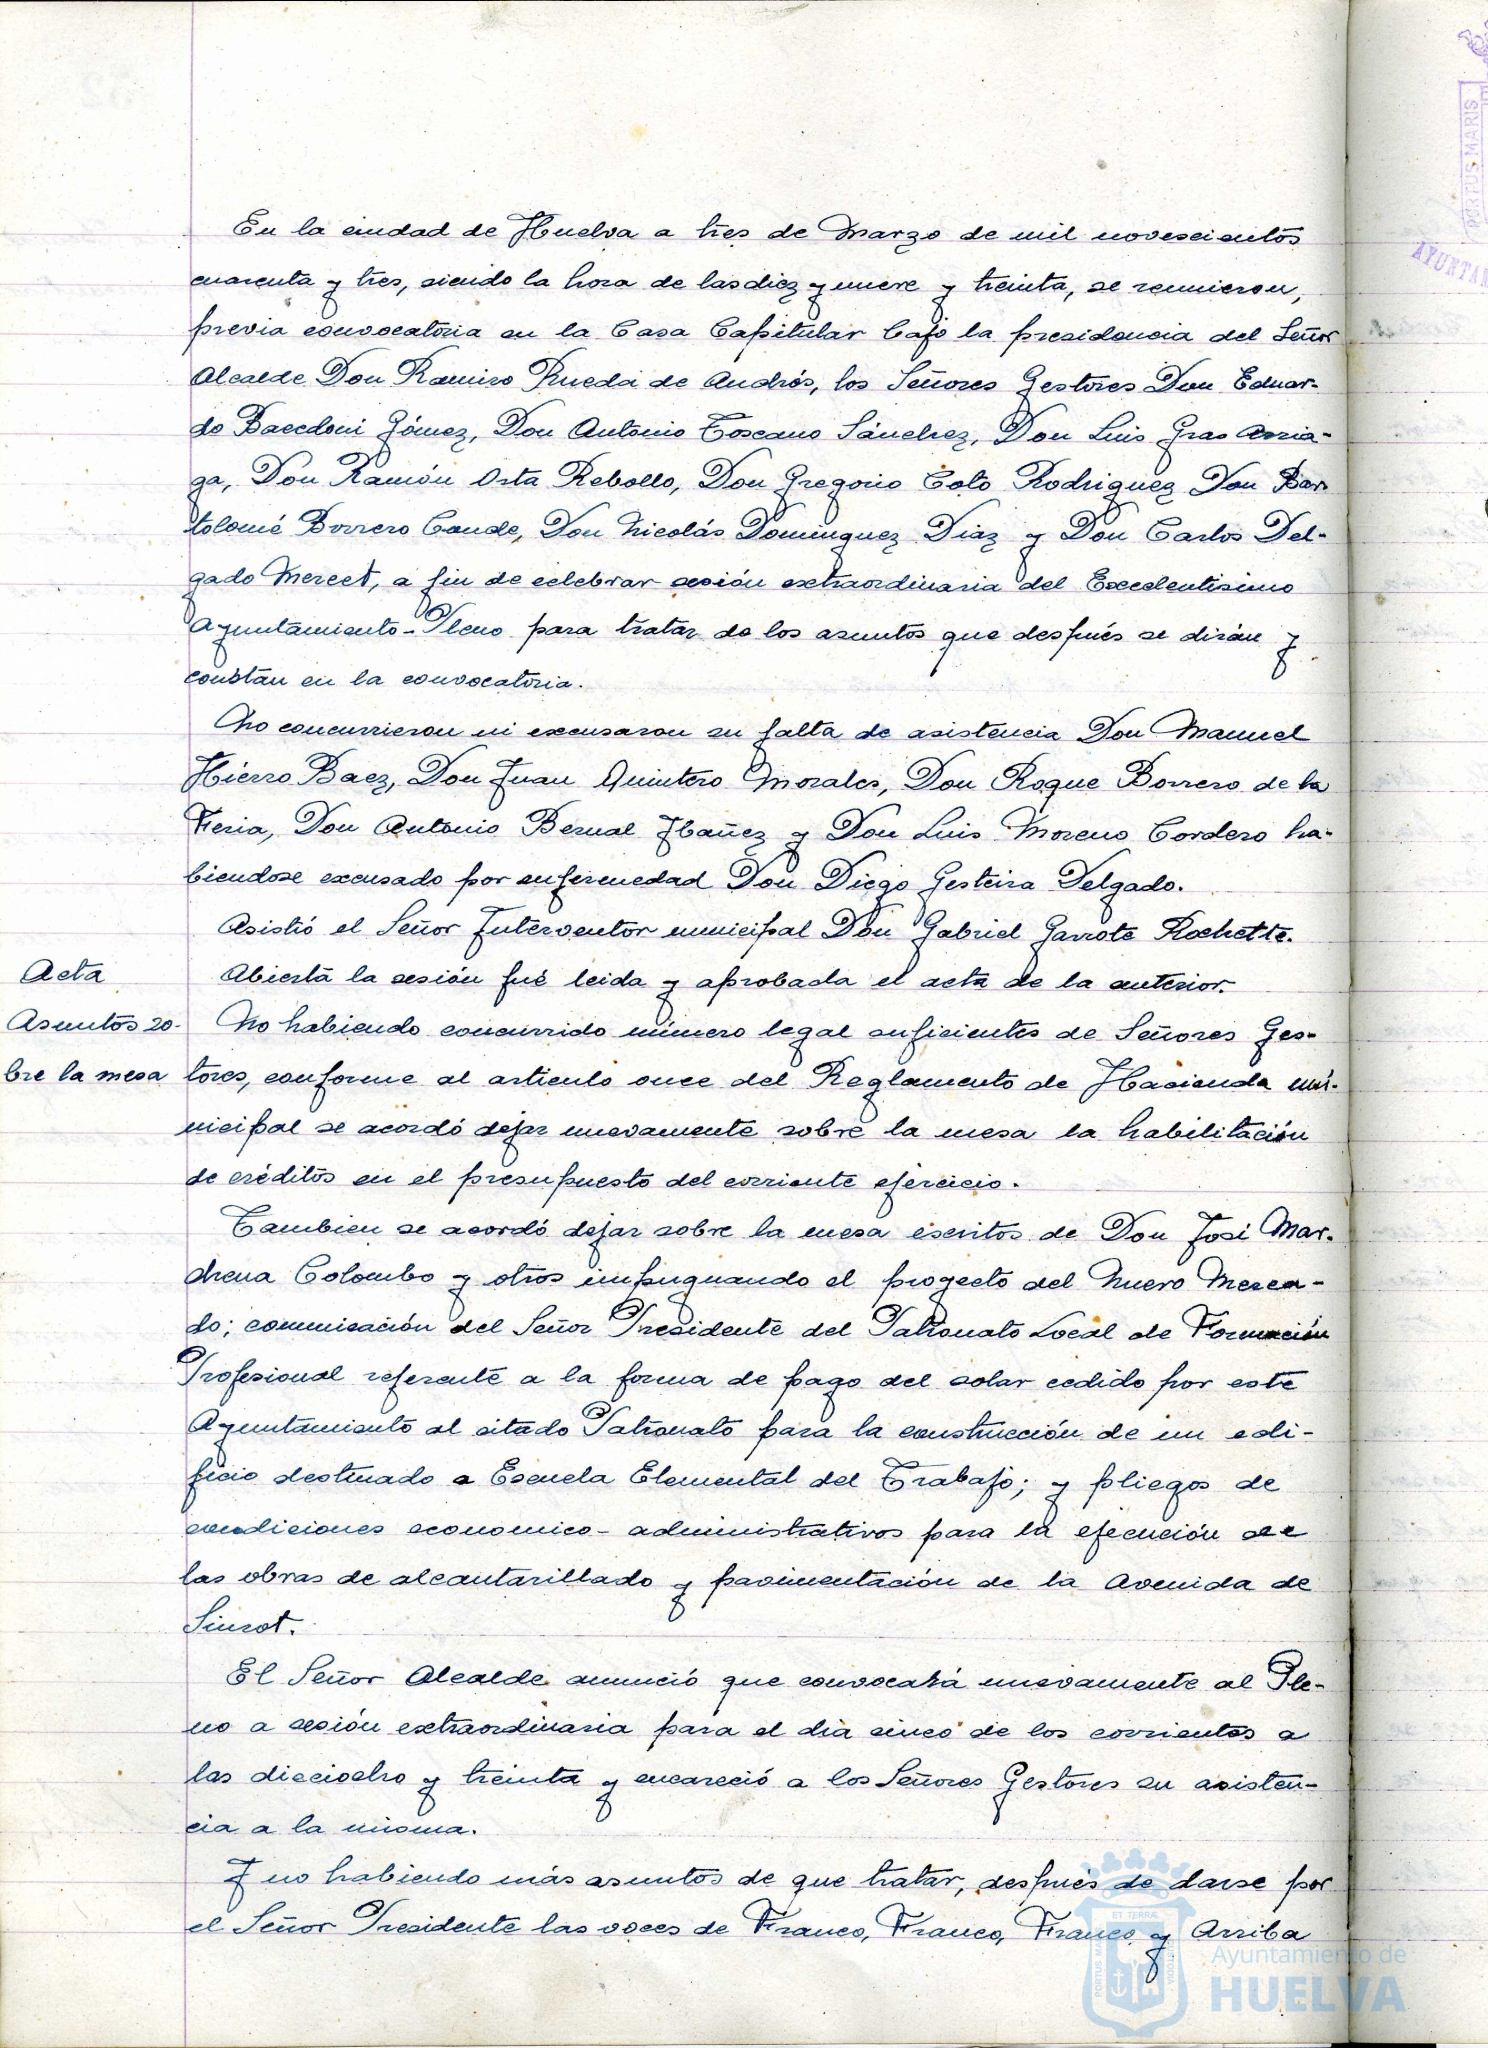 En la ciudad de Huelva a tres de Marzo de mil novescientos
cuarenta y tres, siendo la hora de las diez y nueve y treinta, se reunieron,
previa convocatoria en la Casa Capitular bajo la presidencia del Señor
Alcalde Don Ramiro Rueda de Andrés, los Señores Gestores Don Eduar-
do Baecdoni Gómez, Don Antonio Toscano Sánchez, Don Luis Gras Arria-
ga, Don Ramón Orta Rebollo, Don Gregorio Coto Rodriguez Don Bar
tolomé Borrero Conde, Don Nicolás Dominguez Diaz y Don Carlos Del-
gado Mercet, a fin de celebrar sesión extraordinaria del Excelentisimo
Ayuntamiento-Pleno para tratar de los asuntos que después se dirán y
constan en la convocatoria.
No concurrieron ni excusaron su falta de asistencia Don Manuel
Hierro Baez, Don Juan Quintero Morales, Don Roque Borrero de la
Feria, Don Antonio Bernal Ibañez y Don Luis Moreno Cordero ha-
biendose excusado por enfermedad Don Diego Gesteira Delgado.
Asistió el Señor Interventor municipal Don Gabriel Garrote Rochette.
Acta
Abierta la sesión fué leida y aprobada el acta de la anterior.
Asuntos so-
bre la mesa
No habiendo concurrido número legal suficientes de Señores Ges-
tores, conforme al articulo once del Reglamento de Hacienda mu-
nicipal se acordó dejar nuevamente sobre la mesa la habilitación
de créditos en el presupuesto del corriente ejercicio.
Tambien se acordó dejar sobre la mesa escritos de Don José Mar-
chena Colombo y otros impugnando el proyecto del Nuevo Merca-
do; comunicación del Señor Presidente del Patronato Local de Formación
Profesional referente a la forma de pago del solar cedido por este
Ayuntamiento al citado Patronato para la construcción de un edi-
ficio destinado a Escuela Elemental del Trabajo; y pliegos de
condiciones economico-administrativos para la ejecución de
las obras de alcantarillado y pavimentación de la Avenida de
Siurot.
El Señor Alcalde anunció que convocará nuevamente al Ple-
no a sesión extraordinaria para el dia cinco de los corrientes a
las dieciocho y treinta y encareció a los Señores Gestores su asisten-
cia a la misma.
Y no habiendo más asuntos de que tratar, después de darse por
el Señor Presidente las voces de Franco, Franco, Franco y Arriba
PORTUS MARIS
ET TERRAE
CUSTODIA
Ayuntamiento de
HUELVA
PORTUS MARIS
AYUNTAM